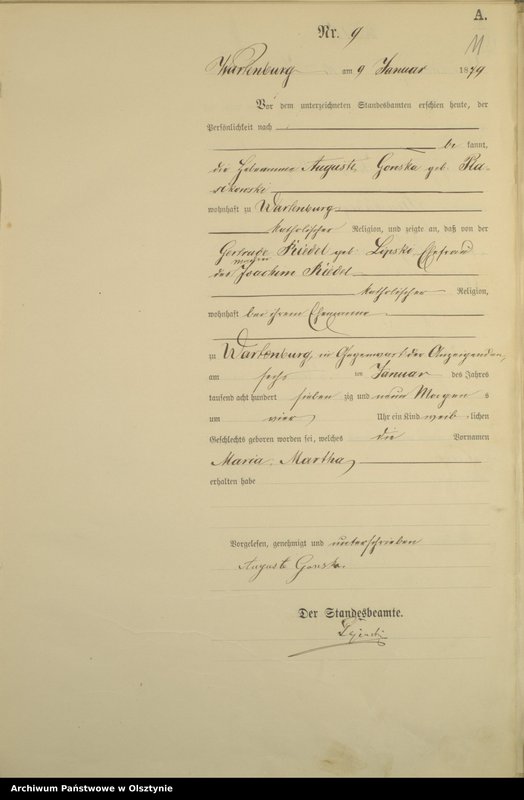 A.
Nr. 9
11
Wartenburg am 9 Januar 1879
Vor dem unterzeichneten Standesbeamten erschien heute, der
Persönlichkeit nach
be kannt,
die Hebeamme Auguste Gonska geb. Ra-
wohnhaft zu Wartenburg
katholischer Religion, und zeigte an, daß von der
Gertrude Riedel geb. Lipski Ehefrau
des Joachim Riedel
katholischer Religion,
wohnhaft bei ihrem Ehemanne
zu Wartenburg, in Gegenwart der Anzeigenden,
am sechs ten Januar des Jahres
tausend acht hundert sieben zig und neun Morgen s
um vier Uhr ein Kind weib lichen
Geschlechts geboren worden sei, welches die Vornamen
Maria Martha
erhalten habe
Vorgelesen, genehmigt und unterschrieben
Auguste Gonska.
Der Standesbeamte.
Archiwum Państwowe w Olsztynie